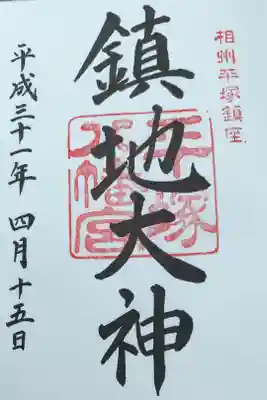 相州平塚鎮座
鎮地大神
平塚
八幡宮
平成三十一年 四月 十五日